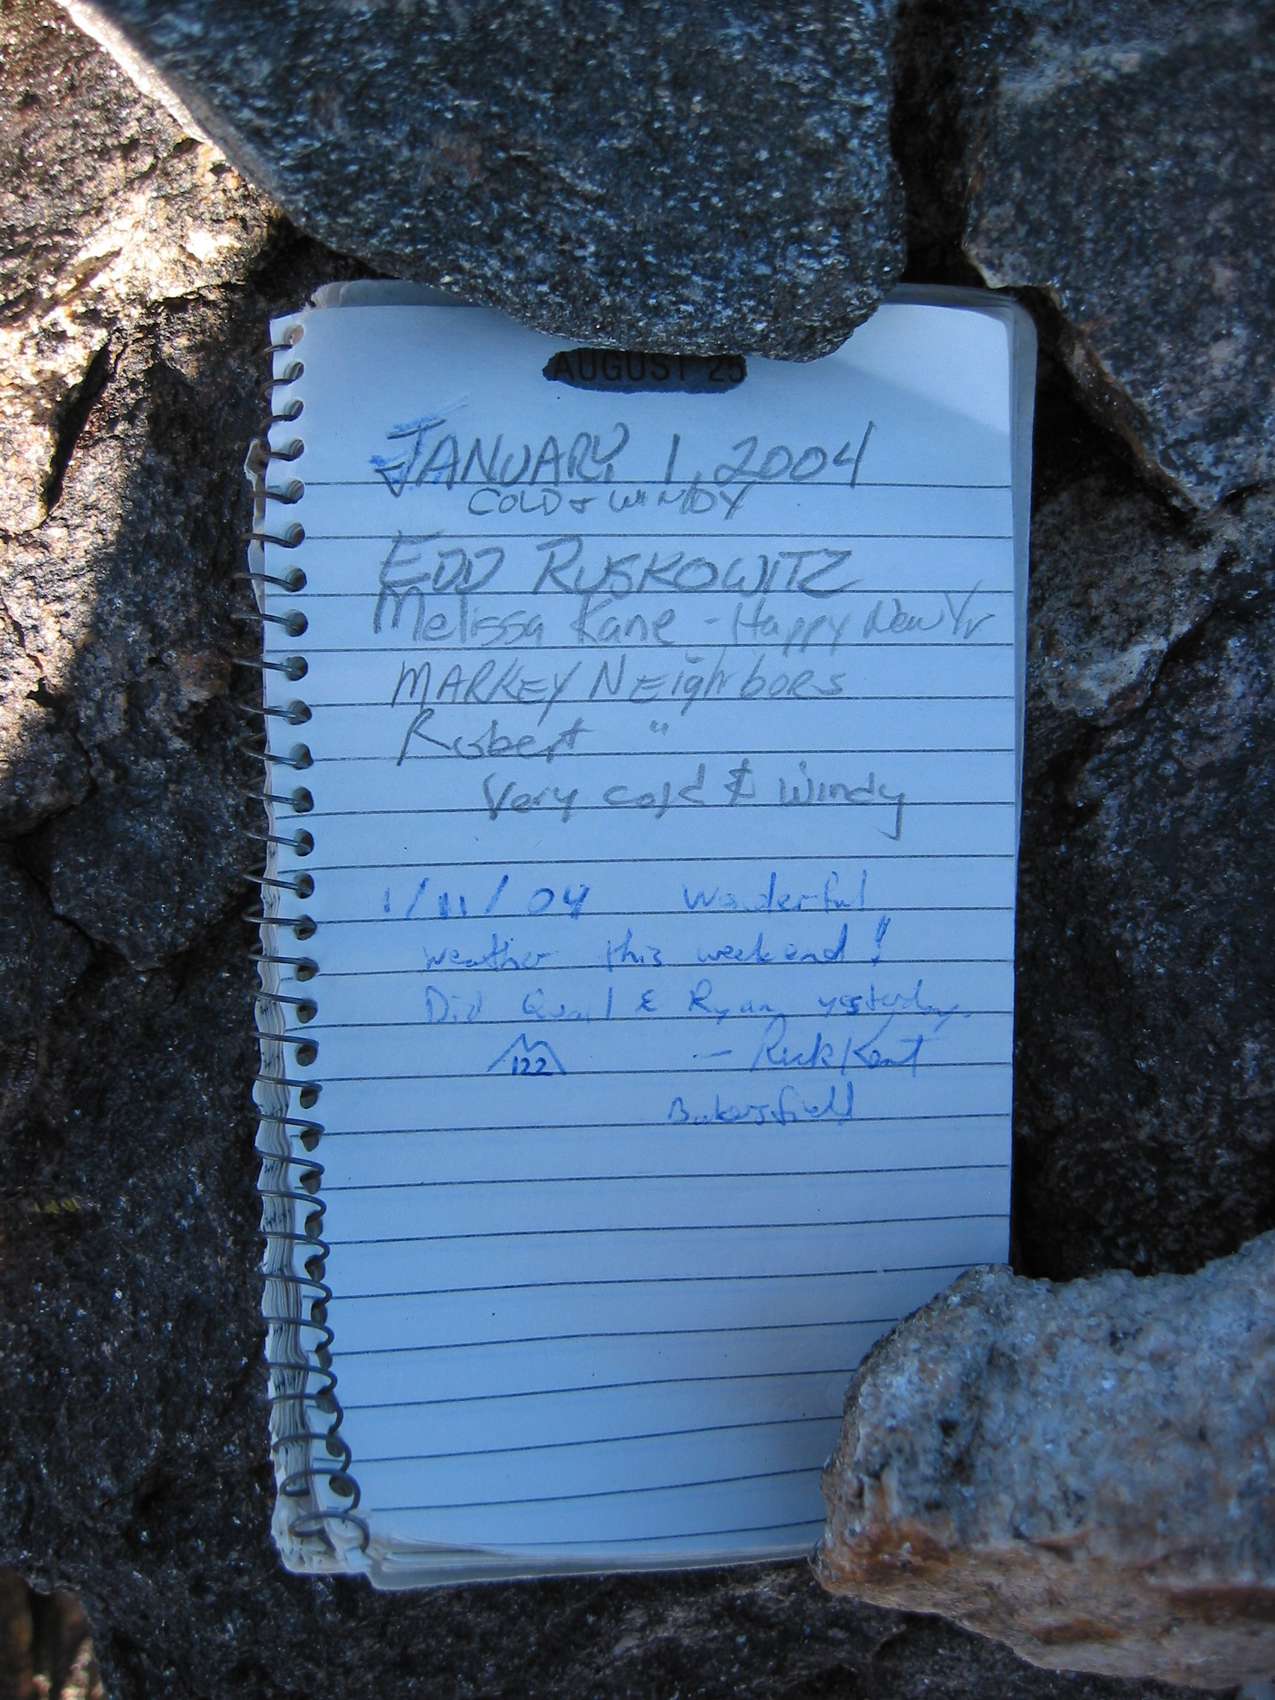 AUGUST 25
JANUARY 1, 2004
COLD & WINDY
EDD RUSKOWITZ
Melissa Kane - Happy New Yr
MARKEY NEighbors
Robert "
Very cold & Windy
1/11/04 Wonderful
weather this weekend!
Did Quail & Ryan yesterday.
122 - Rick Kent
Bakersfield